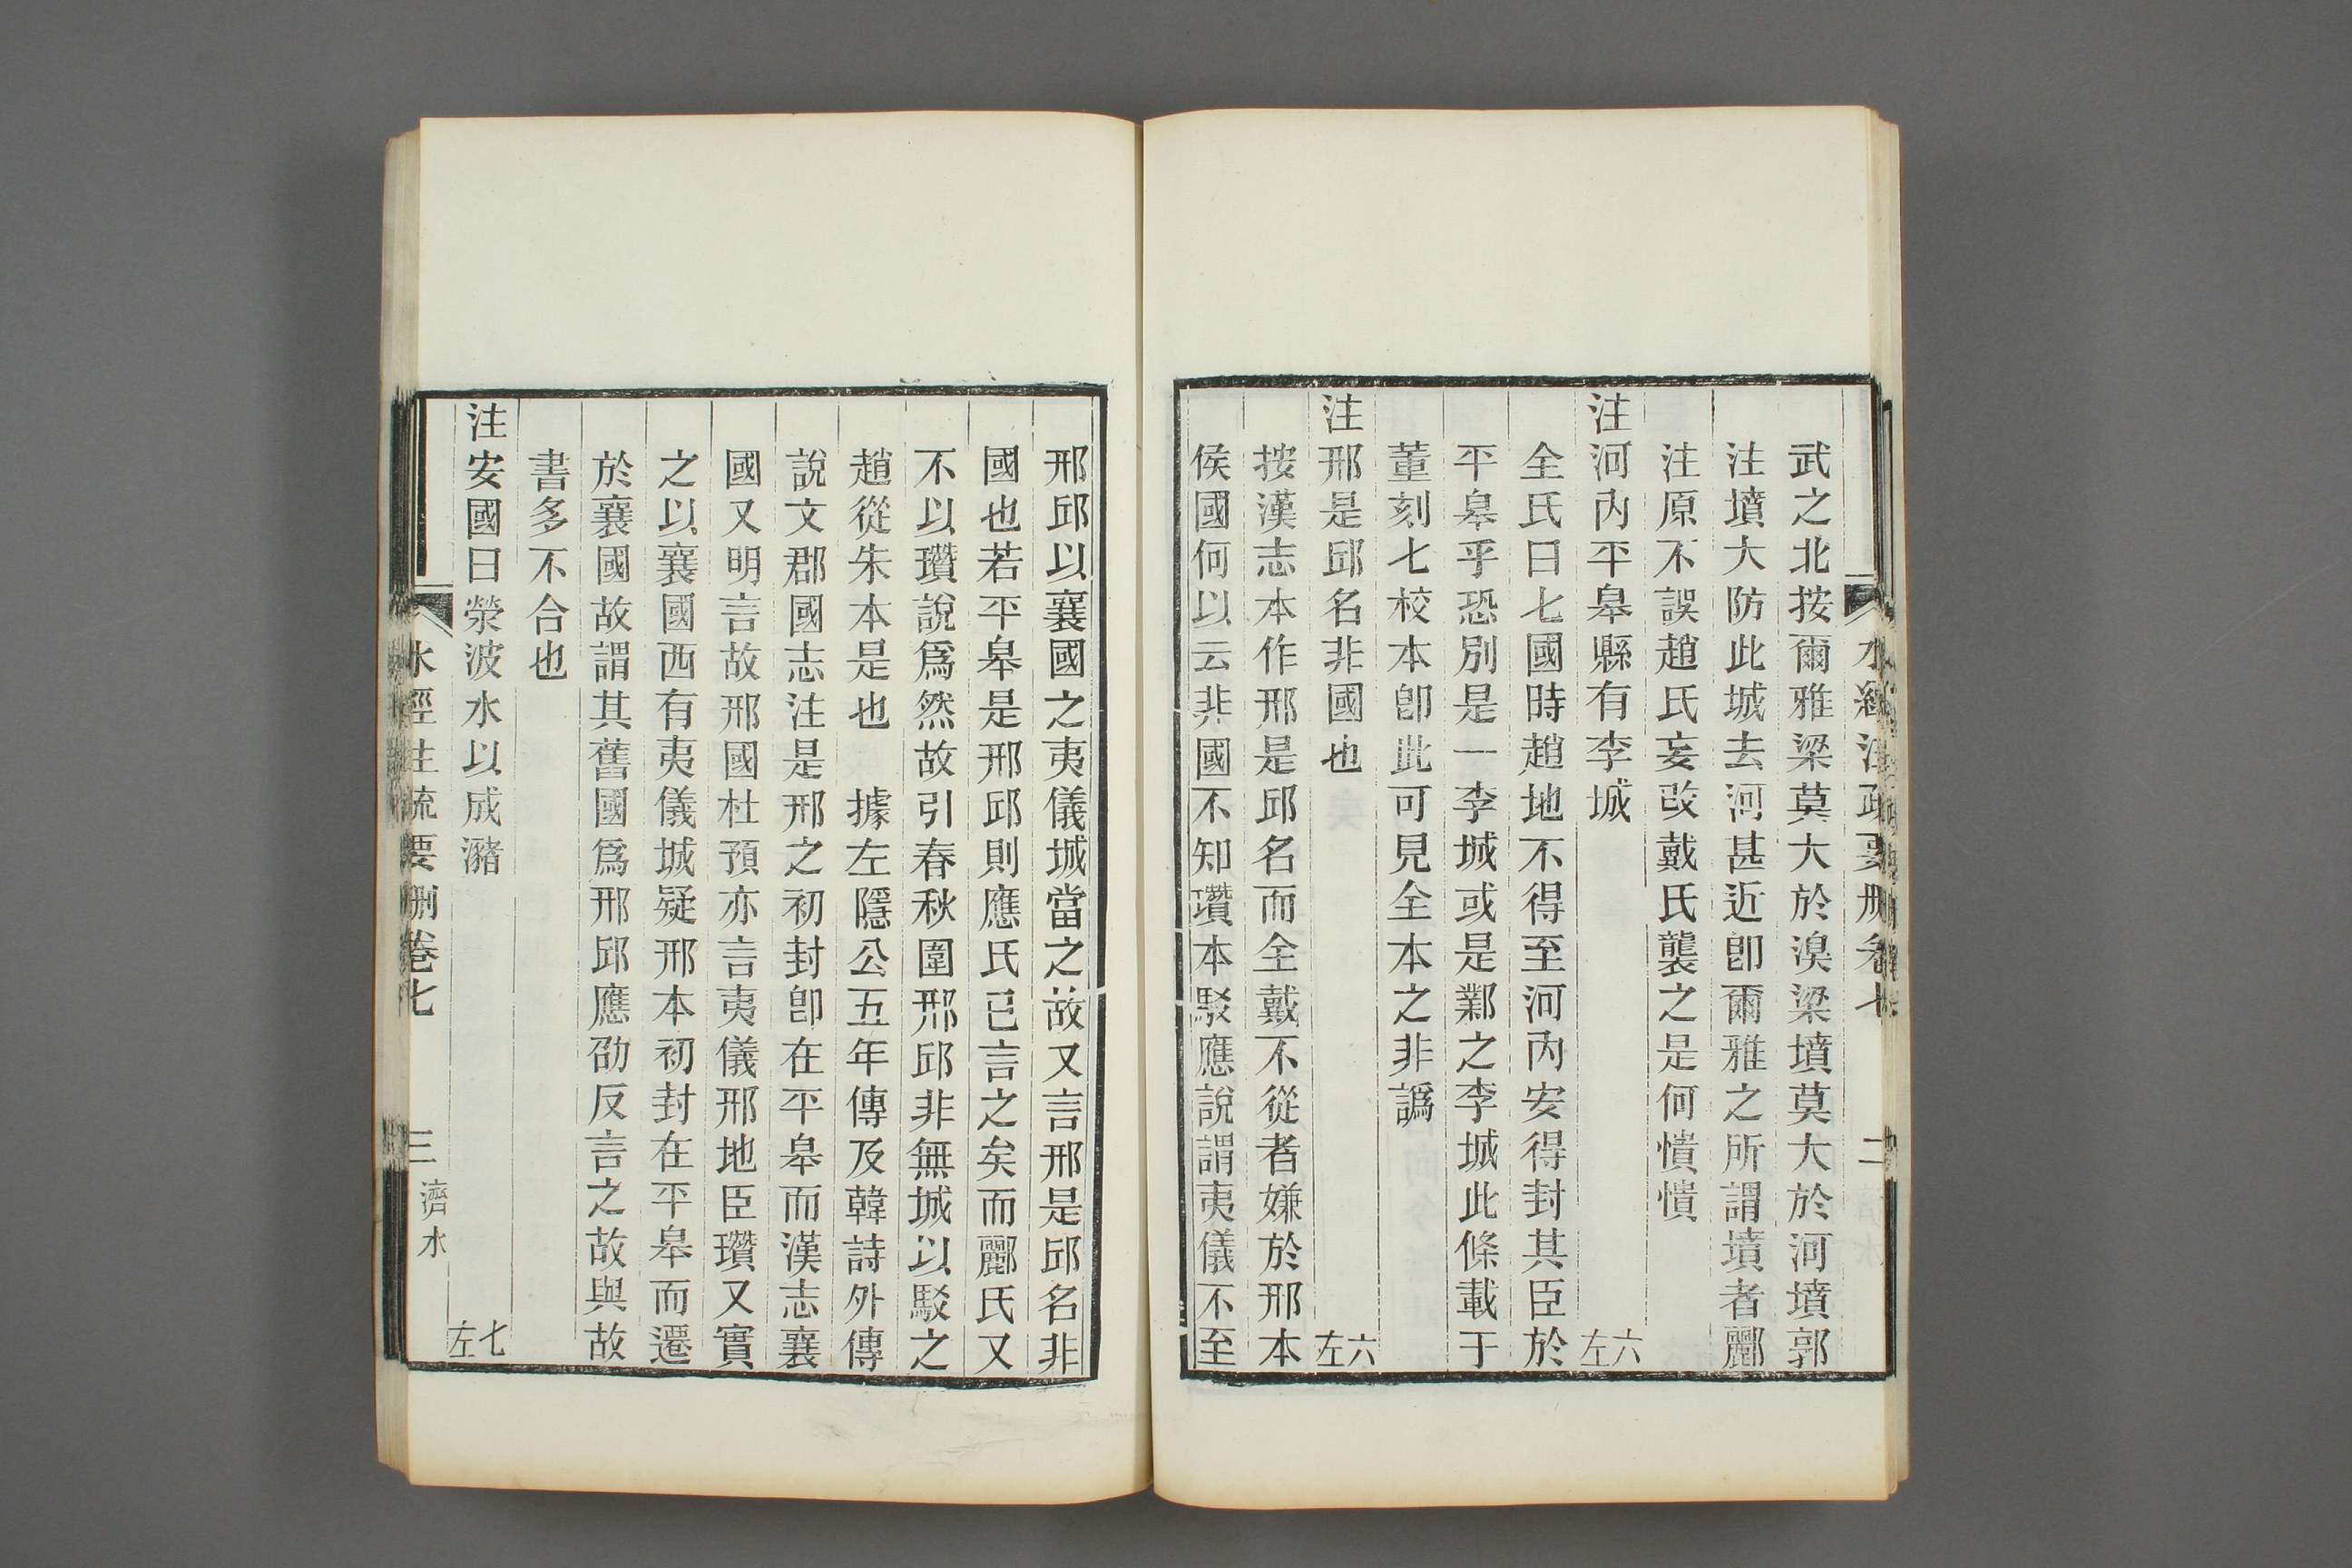 水經注疏要刪卷七
二
武之北按爾雅梁莫大於湨梁墳莫大於河墳郭
注墳大防此城去河甚近卽爾雅之所謂墳者酈
注原不誤趙氏妄改戴氏襲之是何憒憒
注河內平皋縣有李城 六左
全氏曰七國時趙地不得至河內安得封其臣於
平皋乎恐別是一李城或是鄴之李城此條載于
董刻七校本卽此可見全本之非譌
注邢是邱名非國也 六左
按漢志本作邢是邱名而全戴不從者嫌於邢本
侯國何以云非國不知瓚本駁應說謂夷儀不至
邢邱以襄國之夷儀城當之故又言邢是邱名非
國也若平皋是邢邱則應氏已言之矣而酈氏又
不以瓚說爲然故引春秋圍邢邱非無城以駁之
趙從朱本是也 據左隱公五年傳及韓詩外傳
說文郡國志注是邢之初封卽在平皋而漢志襄
國又明言故邢國杜預亦言夷儀邢地臣瓚又實
之以襄國西有夷儀城疑邢本初封在平皋而遷
於襄國故謂其舊國爲邢邱應劭反言之故與故
書多不合也
注安國曰滎波水以成瀦 七左
水經注疏要刪卷七
三
濟水